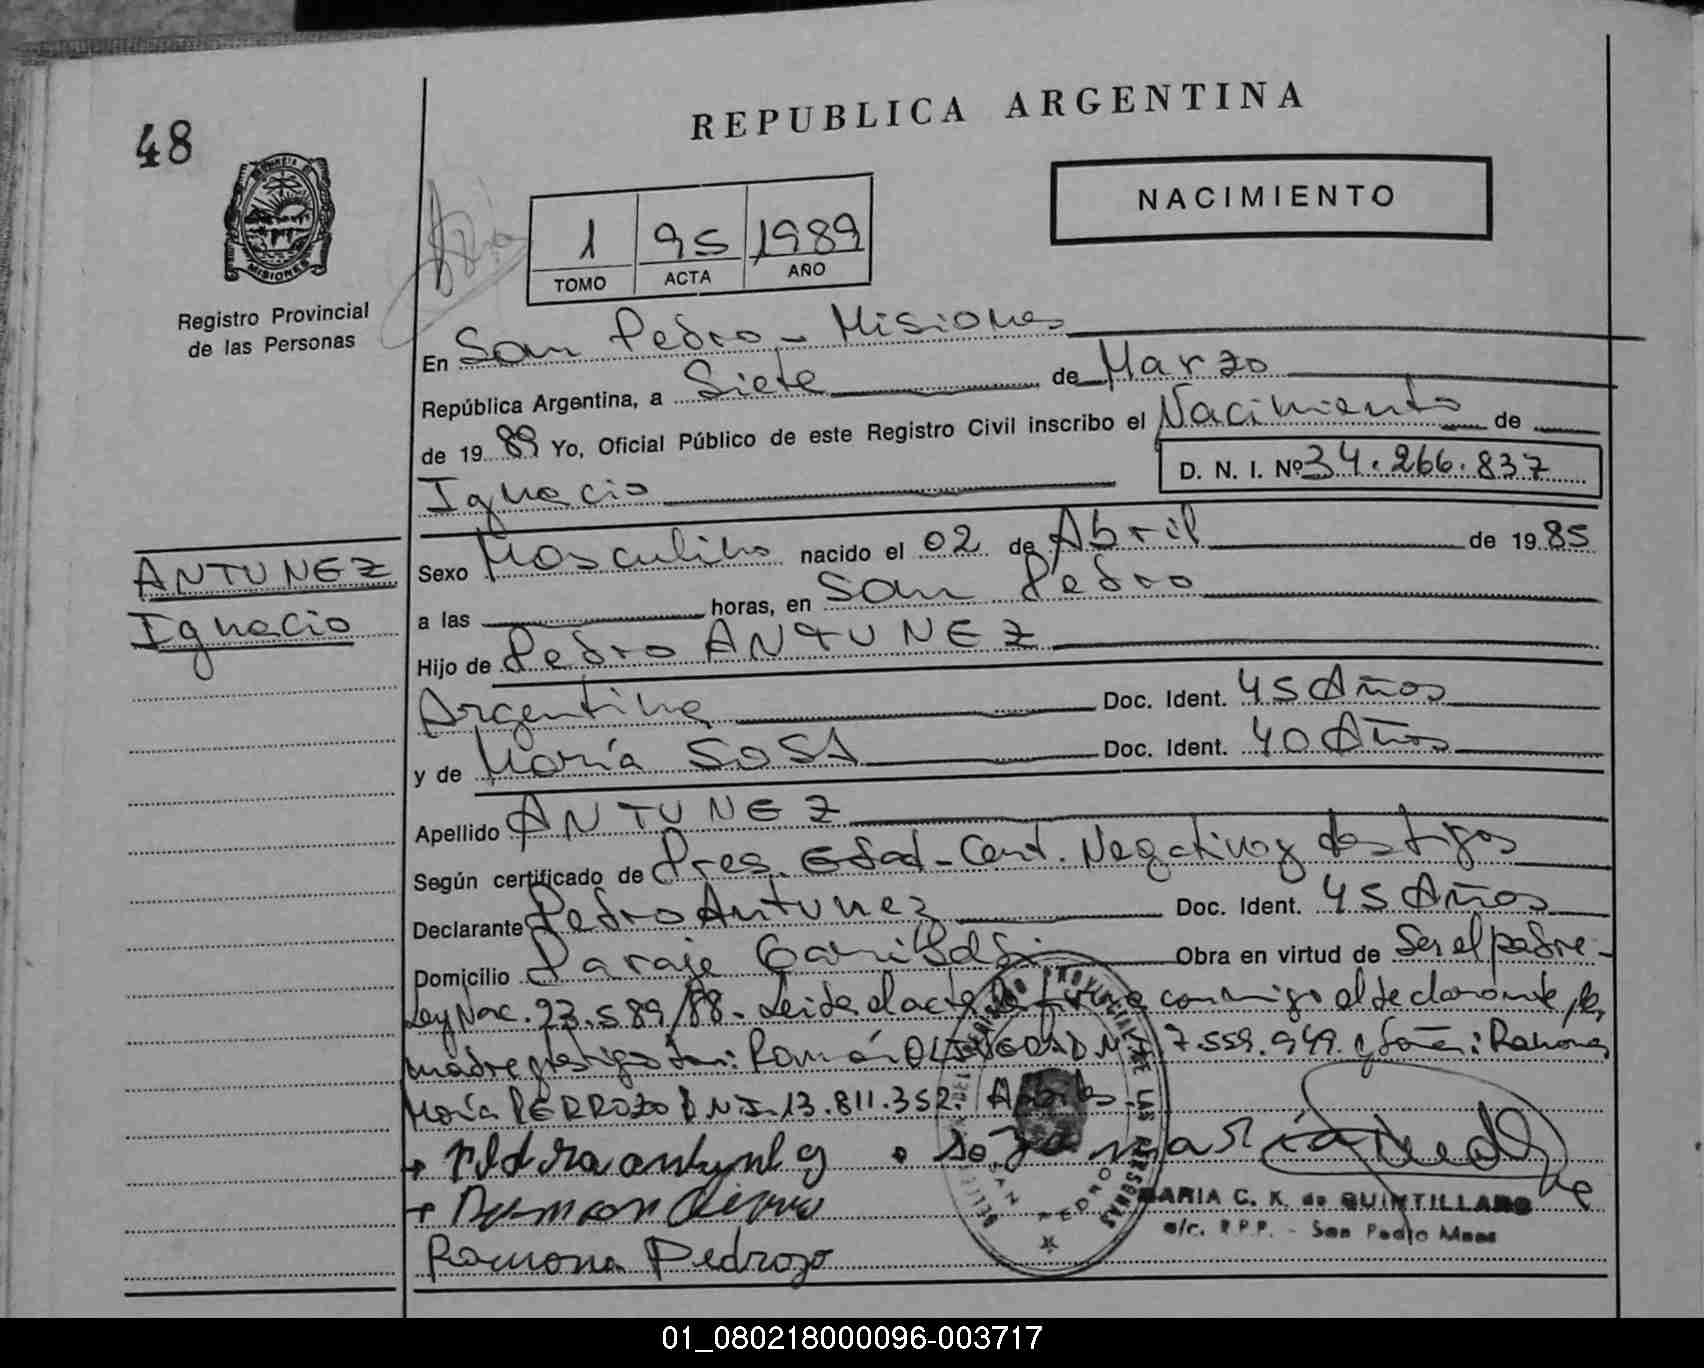 48
REPUBLICA ARGENTINA
NACIMIENTO
1 95 1989
TOMO ACTA AÑO
MISIONES
Registro Provincial
de las Personas
En San Pedro - Misiones
República Argentina, a Siete de Marzo
de 19 89 Yo, Oficial Público de este Registro Civil inscribo el Nacimiento de
D. N. I. Nº 34.266.837
Ignacio
ANTUNEZ
Ignacio
Sexo Masculino nacido el 02 de Abril de 19 85
a las horas, en San Pedro
Hijo de Pedro ANTUNEZ
Argentina Doc. Ident. 45 Años
y de María SOSA Doc. Ident. 40 Años
Apellido ANTUNEZ
Según certificado de Pres. Edad - Cert. Negativo y testigos
Declarante Pedro Antunez Doc. Ident. 45 Años
Domicilio Paraje Garibaldi Obra en virtud de Ser el padre -
Ley Nac. 23.589/88. Leida el acta la firma conmigo el declarante, la
madre y testigos Don: Román DNI 7.559.949 y Doña: Ramona
María PEDROZO DNI 13.811.352.
Ramona Pedrozo
MARIA C. K. de QUINTILLANO
a/c. R.P.P. - San Pedro Mnes
01_080218000096-003717